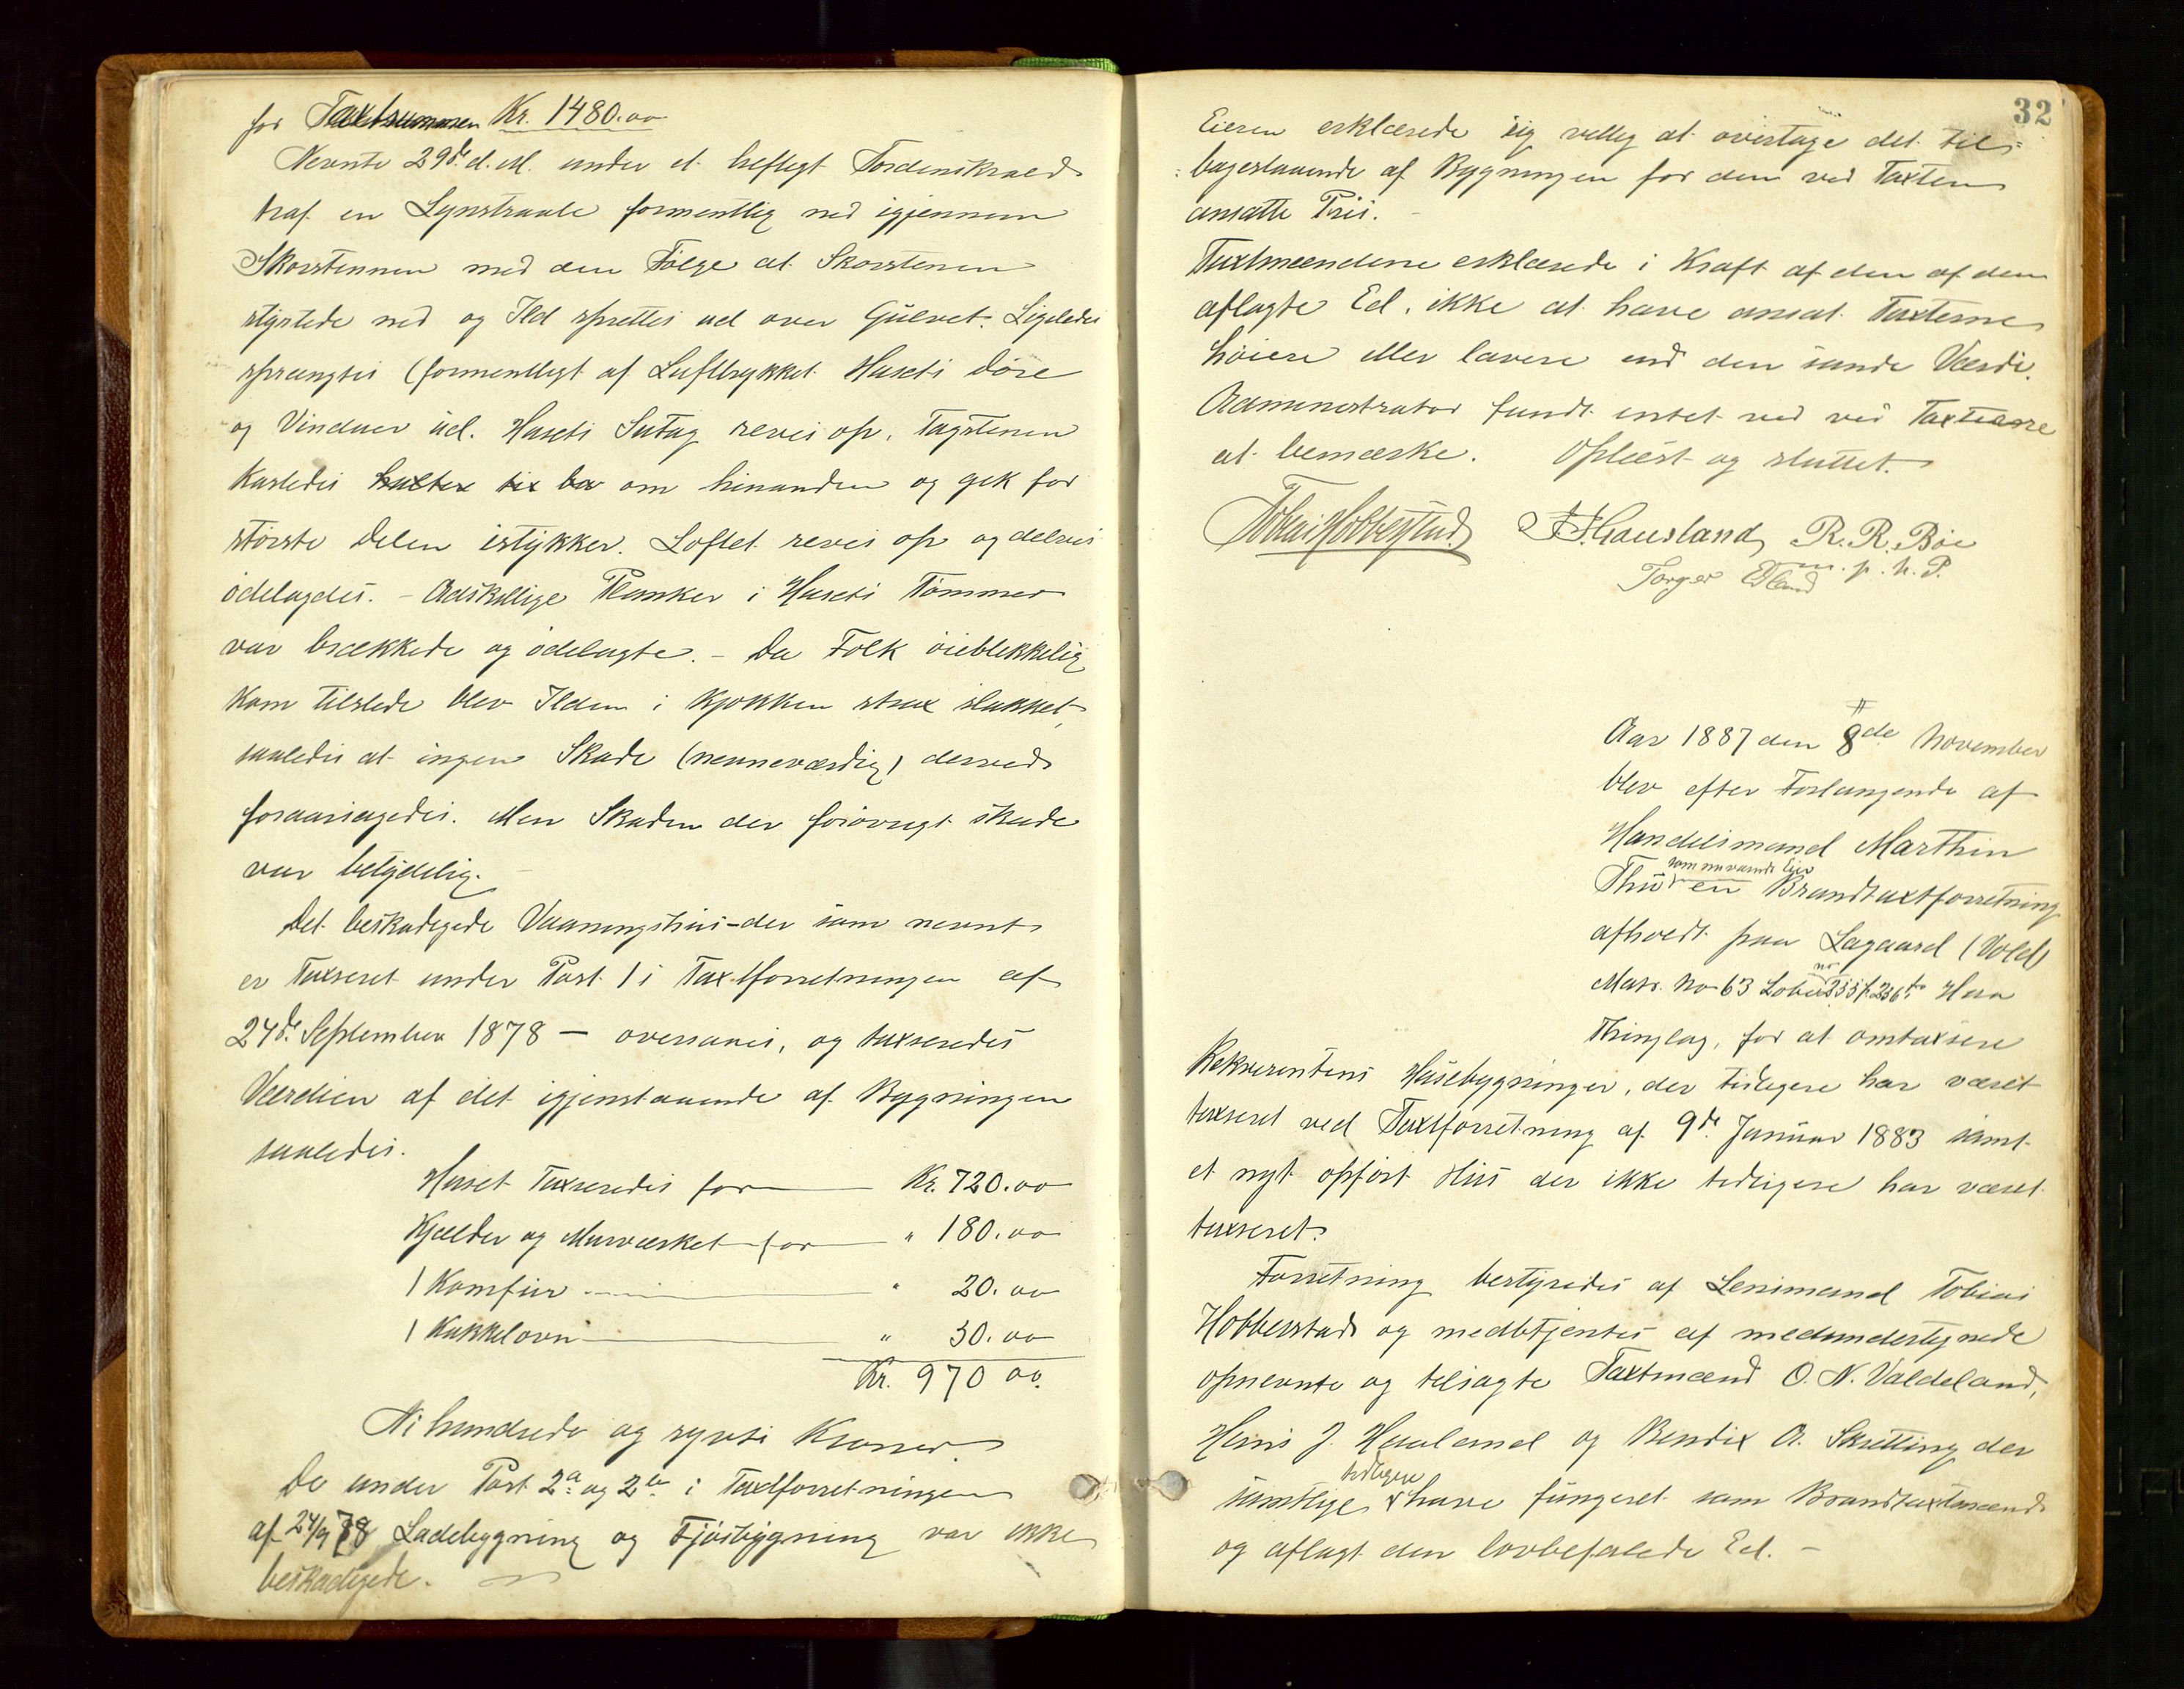 for Taxtsummen Kr. 1480.00
Nevnte 29de d.M. under et heftigt Tordenskrald
traf en Lynstraale formentlig ned igjennem
Skorstennen med den Følge at Skorstenen
styrtede ned og Ild sprettes ud over Gulvet. Ligeledes
sprængtes (formentligt af Lufttrykket Husets Døre
og Vinduer ud. Husets Sutag reves op, Tagstenen
kastedes om hinanden og gik for
største Delen istykker. Loftet reves op og delvis
ødelagdes. – Adskillige Planker i Husets Tømmer
var brækkede og ødelagte. – Da Folk øieblikkelig
kom tilstede blev Ilden i Kjøkken strax slukket,
saaledes at ingen Skade (nenneværdig) derved
foraarsagedes. Men Skaden der forøvrigt skede
var betydelig.
Det beskadigede Vaaningshus – der som nevnt
er taxseret under Post 1 i Taxtforretningen af
24de September 1878 – oversaaes, og taxseredes
Værdien af det igjenstaaende af Bygningen
saaledes.
Huset taxseredes for Kr. 720.00
Kjælder og Murværket for " 180.00
1 Komfur " 20.00
1 Kakkelovn " 50.00
Kr. 970 00.
Ni hundrede og sytti Kroner
De under Post 2a og 2b i Taxtforretningen
af 24/9 78 Ladebygning og Fjøsbygning var ikke
beskadigede.
32
Eieren erklærede sig villig at overtage det til=
=bagestaaende af Bygningen for den ved Taxten
ansatte Pris. –
Taxtmændene erklærede i Kraft af den af dem
aflagte Ed, ikke at have ansat Taxterne
høiere eller lavere end den sande Værdi.
Administrator fandt intet ved ved Taxterne
at bemærke. Oplæst og sluttet.
Tobias Hobberstad. Gausland R. R. Bøe
m. p. h. P.
Torger Eland
Aar 1887 den 8de November
blev efter Forlangende af
Handelsmand Marthin
som nuværende Eier
Thu en Brandtaxtforretning
afholdt paa Lagaard (Vold)
Matr. No 63 Løbe no 235 f. 236 to Haa
Thinglag, for at omtaxsere
Rekvirentens Husebygninger, der tidligere har været
taxseret ved Taxtforretning af 9de Januar 1883 samt
et nyt opført Hus der ikke tidligere har været
taxseret.
Forretning bestyredes af Lensmand Tobias
Hobberstad og medbetjentes af medunderteignede
opnevnte og tilsagte Taxtmænd O. N. Valdeland,
Hans J. Haaland og Bendix A. Skretting der
tidligere
samtlige have fungeret som Brandtaxtmænd
og aflagt den lovbefalede Ed. –